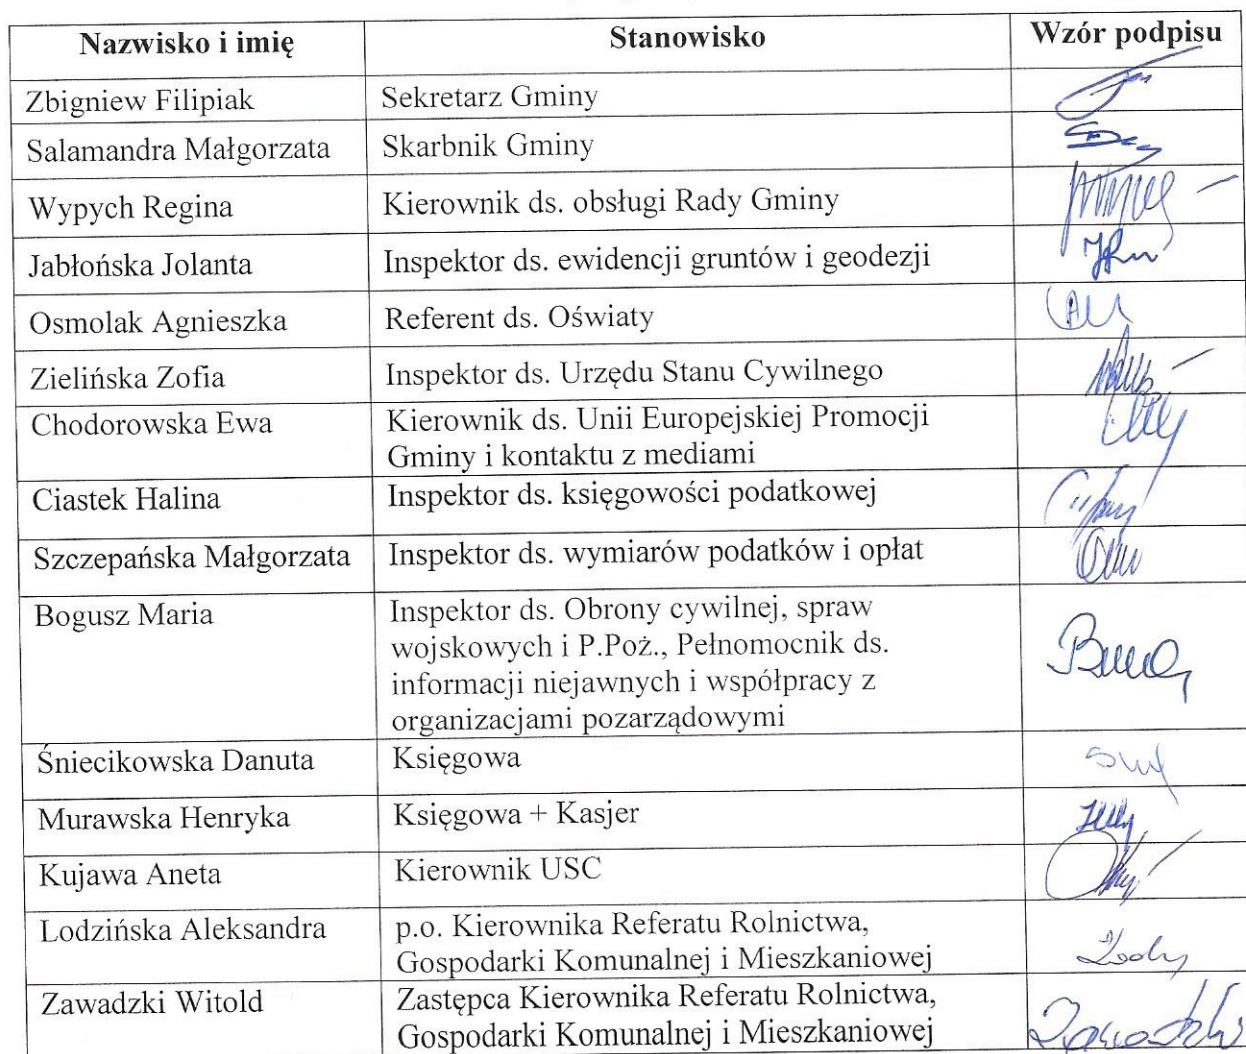 Nazwisko i imię Stanowisko Wzór podpisu
Zbigniew Filipiak Sekretarz Gminy
Salamandra Małgorzata Skarbnik Gminy
Wypych Regina Kierownik ds. obsługi Rady Gminy
Jabłońska Jolanta Inspektor ds. ewidencji gruntów i geodezji
Osmolak Agnieszka Referent ds. Oświaty
Zielińska Zofia Inspektor ds. Urzędu Stanu Cywilnego
Chodorowska Ewa Kierownik ds. Unii Europejskiej Promocji
Gminy i kontaktu z mediami
Ciastek Halina Inspektor ds. księgowości podatkowej
Szczepańska Małgorzata Inspektor ds. wymiarów podatków i opłat
Bogusz Maria Inspektor ds. Obrony cywilnej, spraw
wojskowych i P.Poż., Pełnomocnik ds.
informacji niejawnych i współpracy z
organizacjami pozarządowymi
Śniecikowska Danuta Księgowa
Murawska Henryka Księgowa + Kasjer
Kujawa Aneta Kierownik USC
Lodzińska Aleksandra p.o. Kierownika Referatu Rolnictwa,
Gospodarki Komunalnej i Mieszkaniowej
Zawadzki Witold Zastępca Kierownika Referatu Rolnictwa,
Gospodarki Komunalnej i Mieszkaniowej Zawadzki